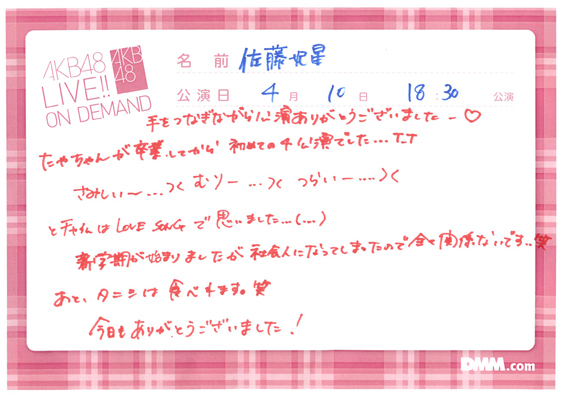 AKB48
LIVE!!
ON DEMAND
AKB
48
名前 佐藤妃星
公演日 4月 10日 18:30 公演
手をつなぎながら公演ありがとうございました〜♡
たやちゃんが卒業してから 初めての4公演でした...T_T
さみしい〜...つく むりー...つく つらいー....つく
とチャイムはLOVE SONGで思いました...(...)
新学期が始まりましたが社会人になってしまったので全く関係ないです..笑
あと、タニシは食べれます。笑
今日もありがとうございました!
DMM.com